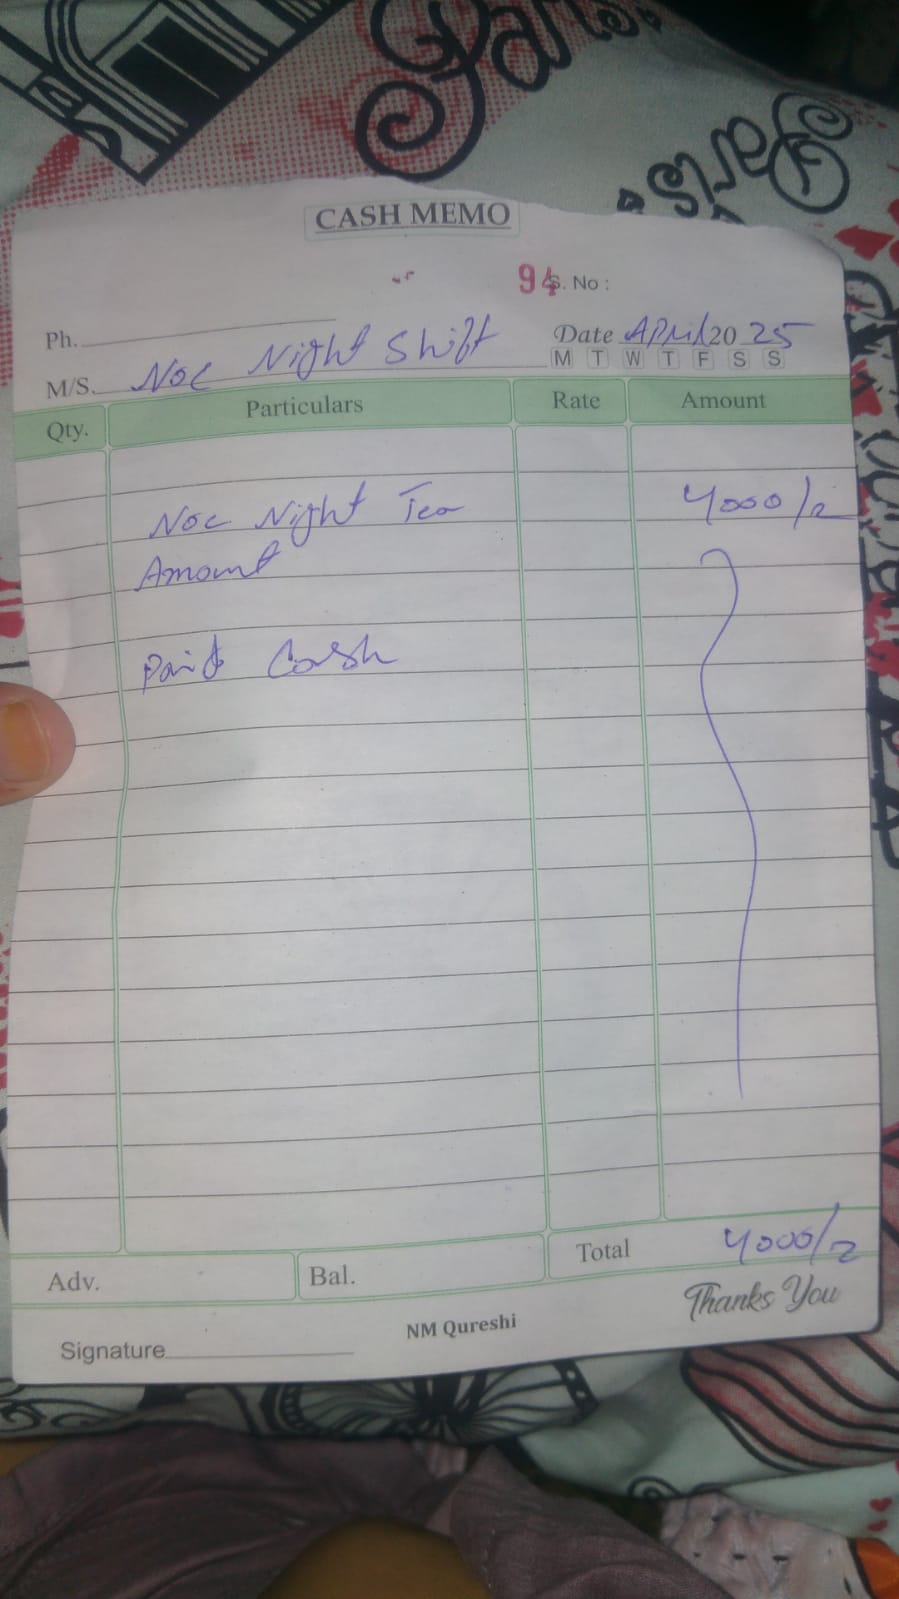 Paris.
Paris.
CASH MEMO
94 S. No :
Ph.
Date April 20 25
M/S. Noc Night Shift
M T W T F S S
Qty. Particulars Rate Amount
Noc Night Tea 4000/=
Amount
Paid Cash
Total 4000/=
Adv. Bal.
Thanks You
NM Qureshi
Signature